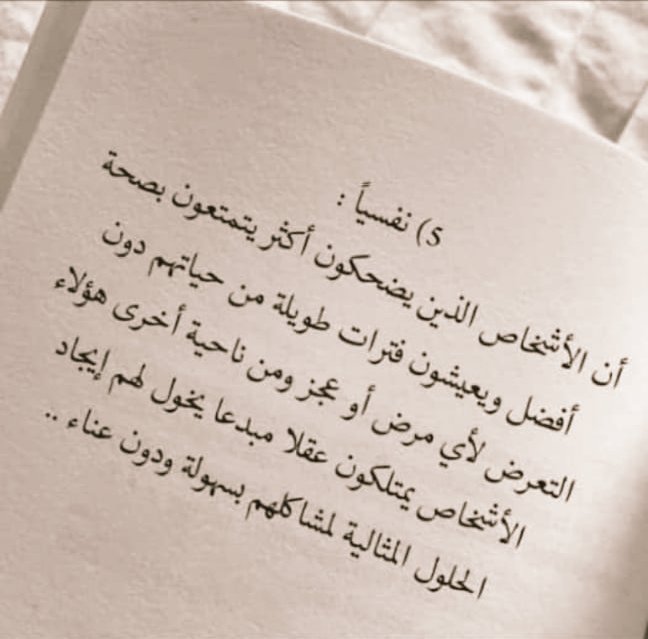 5) نفسياً :
أن الأشخاص الذين يضحكون أكثر يتمتعون بصحة
أفضل ويعيشون فترات طويلة من حياتهم دون
التعرض لأي مرض أو عجز ومن ناحية أخرى هؤلاء
الأشخاص يمتلكون عقلا مبدعا يخول لهم إيجاد
الحلول المثالية لمشاكلهم بسهولة ودون عناء ..